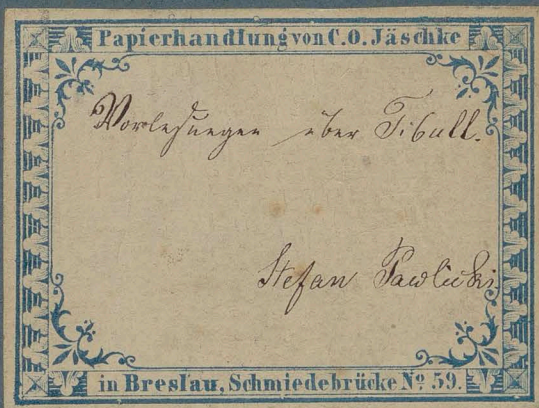 Papierhandlung von C.O. Jäschke
Vorlesungen über Tibull.
Stefan Pawlicki
in Breslau, Schmiedebrücke Nº 59.